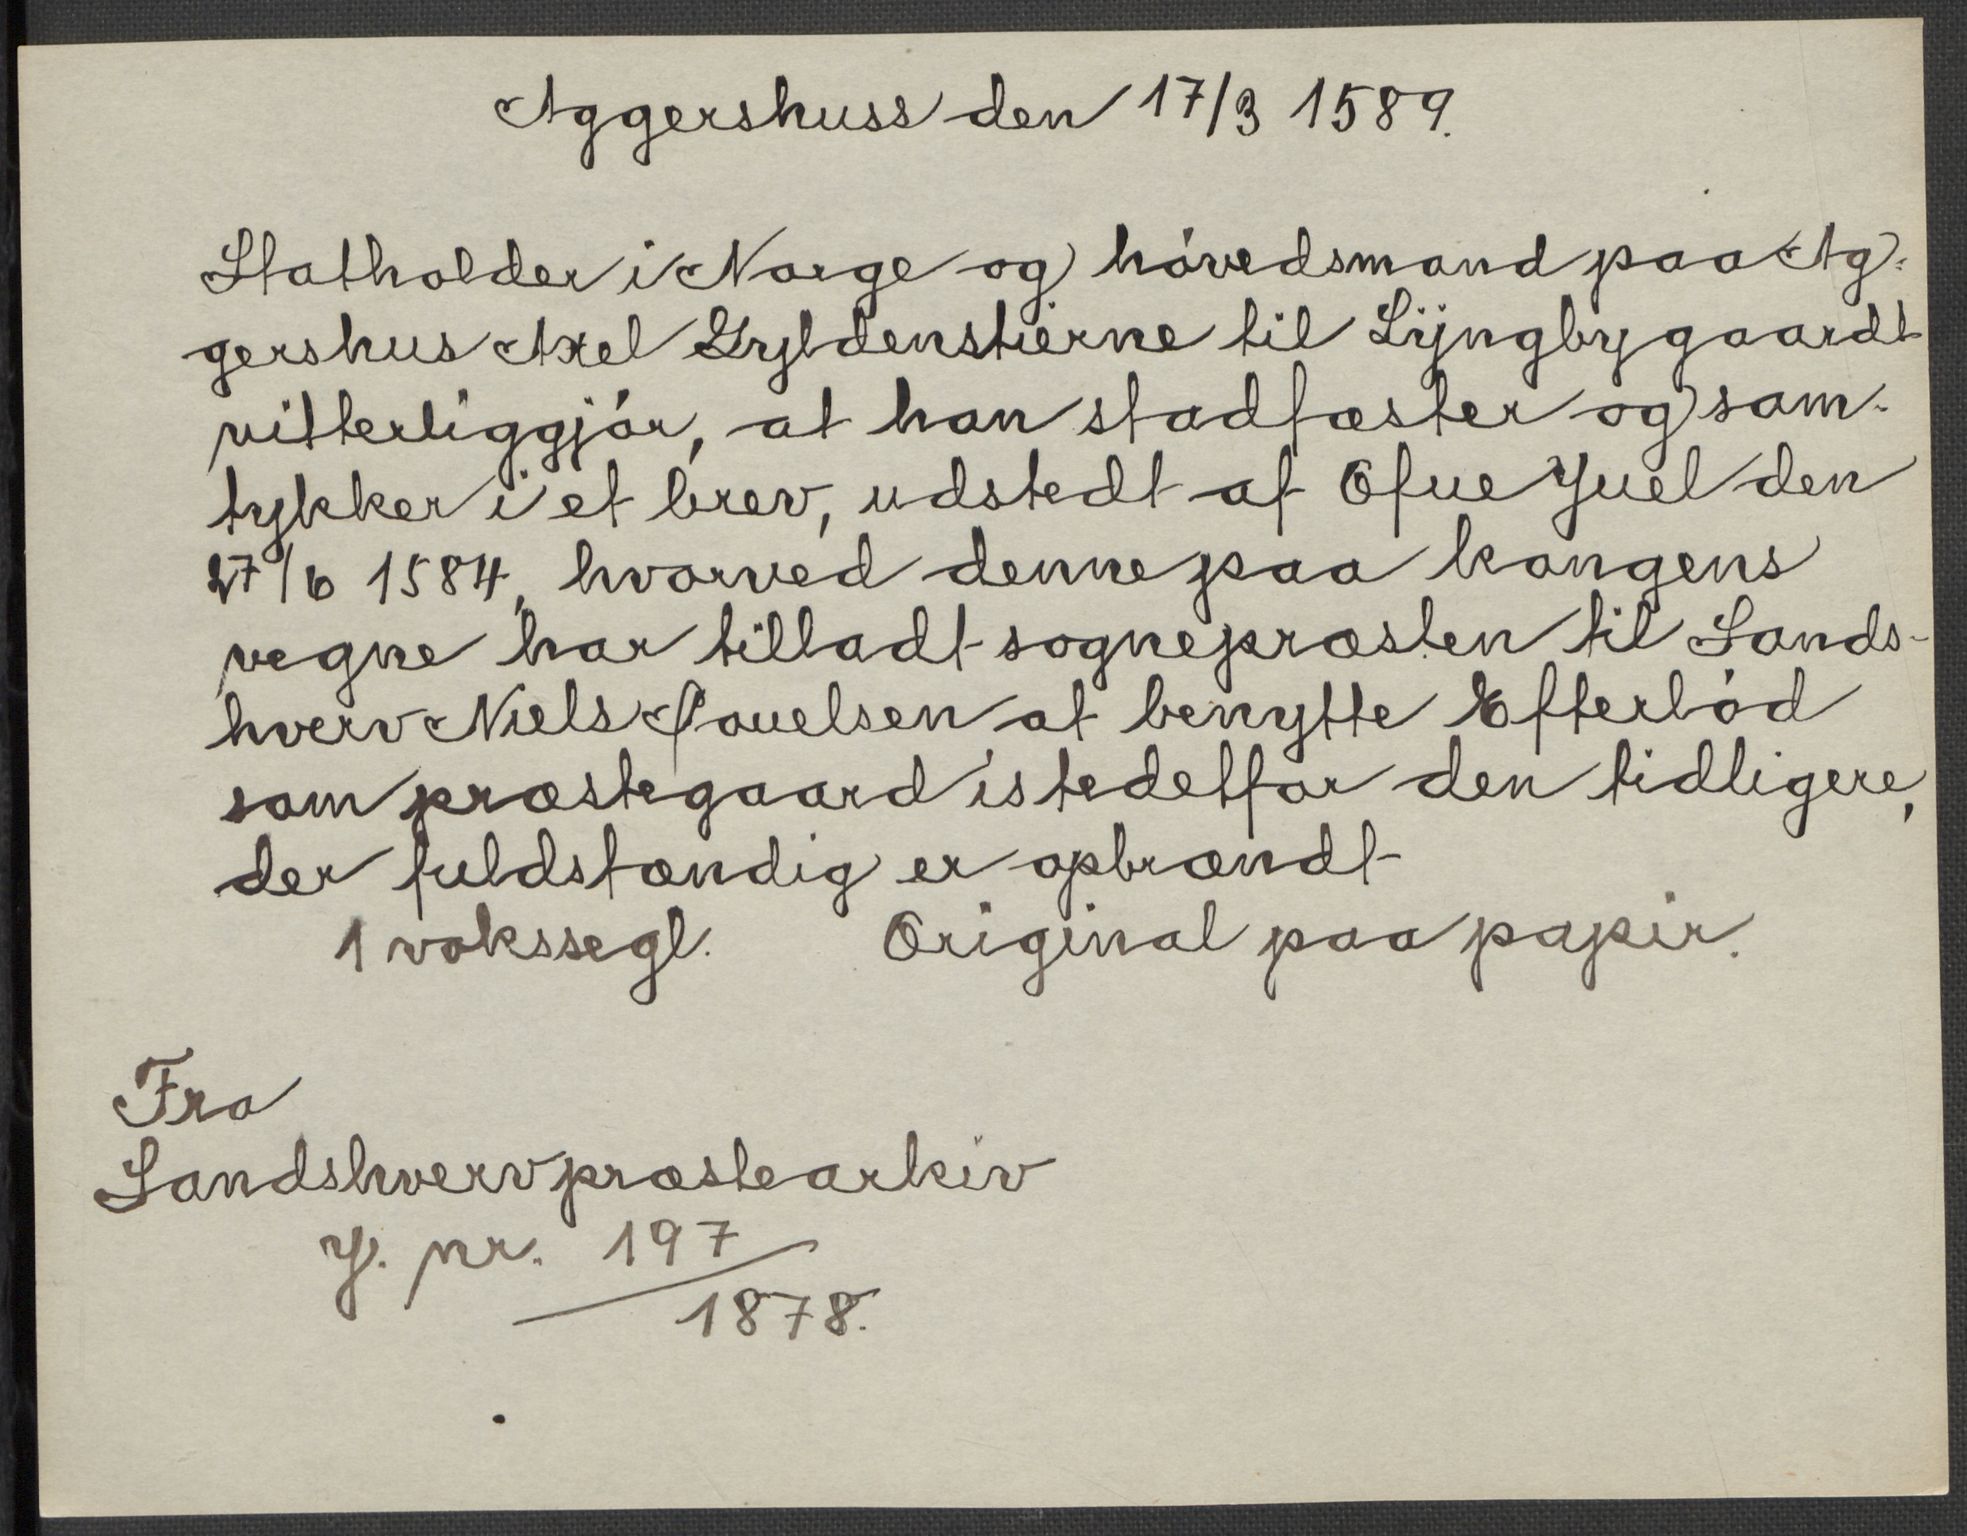 Aggershuss den 17/3 1589.
Statholder i Norge og hóvedsmand paa Ag-
gershus Axel Gyldenstierne til Lÿngbygaardt
vitterliggjór, at han stadfæster og sam-
tykker i et brev, udstedt af Ofue Juel den
27/6 1584, hvorved denne paa kongens
vegne har tilladt sognepræsten til Lands-
hverv Niels Pouelsen at benytte Efterlód
som præstegaard istedetfor den tidligere,
der fuldstændig er opbrændt
1 vokssegl. Original paa papir.
Fra
Landshverv præstearkiv
J. nr. 197/1878.